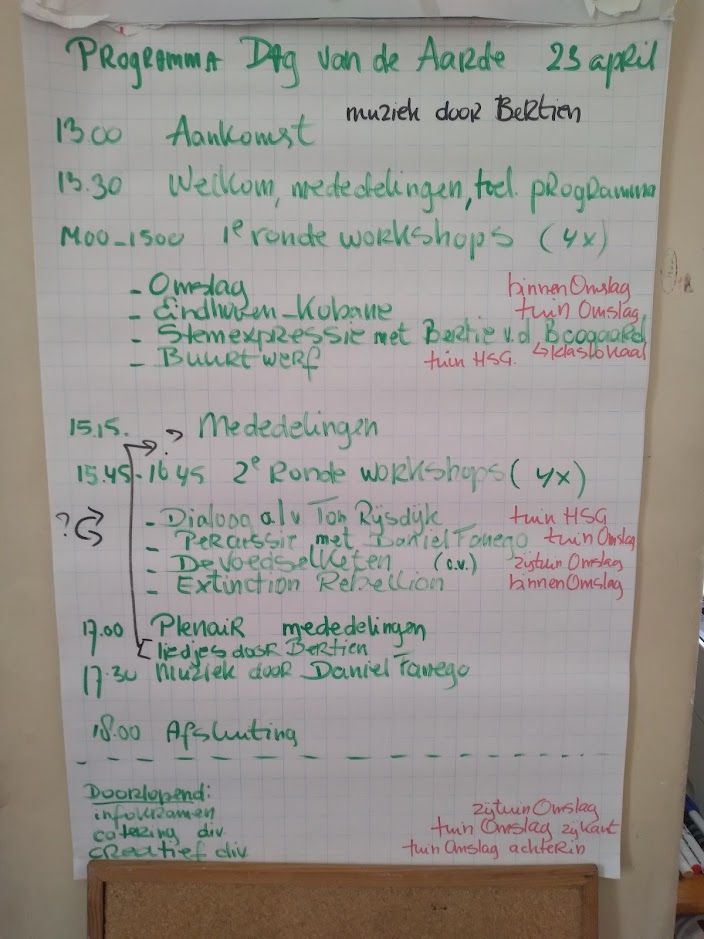 PROGRAMMA DAg van de AARde 23 april
muziek door BeRtien
13.00 Aankomst
13.30 Welkom, mededelingen, toel. pRogRamma
1400-1500 1e ronde workshops (4x)
- Omslag binnen Omslag
- Eindhoven-Kobane tuin Omslag
- Stemexpressie met Bertie v.d Boogaard
↳ klaslokaal
- Buurtwerf tuin HSG.
15.15. ? Mededelingen
15.45-16.45 2e Ronde workshops (4x)
?
- Dialoog o.l.v Ton Rijsdijk tuin HSG
- Percussie met Daniel Tanego tuin Omslag
- De Voedselketen (o.v.) zijtuin Omslag
- Extinction Rebellion binnen Omslag
17.00 Plenair mededelingen
[ liedjes door Bertien
17.30 Muziek door Daniel Tanego
18.00 Afsluiting
Doorlopend:
infokramen zijtuin Omslag
catering div. tuin Omslag zijkant
creatief div. tuin Omslag achterin